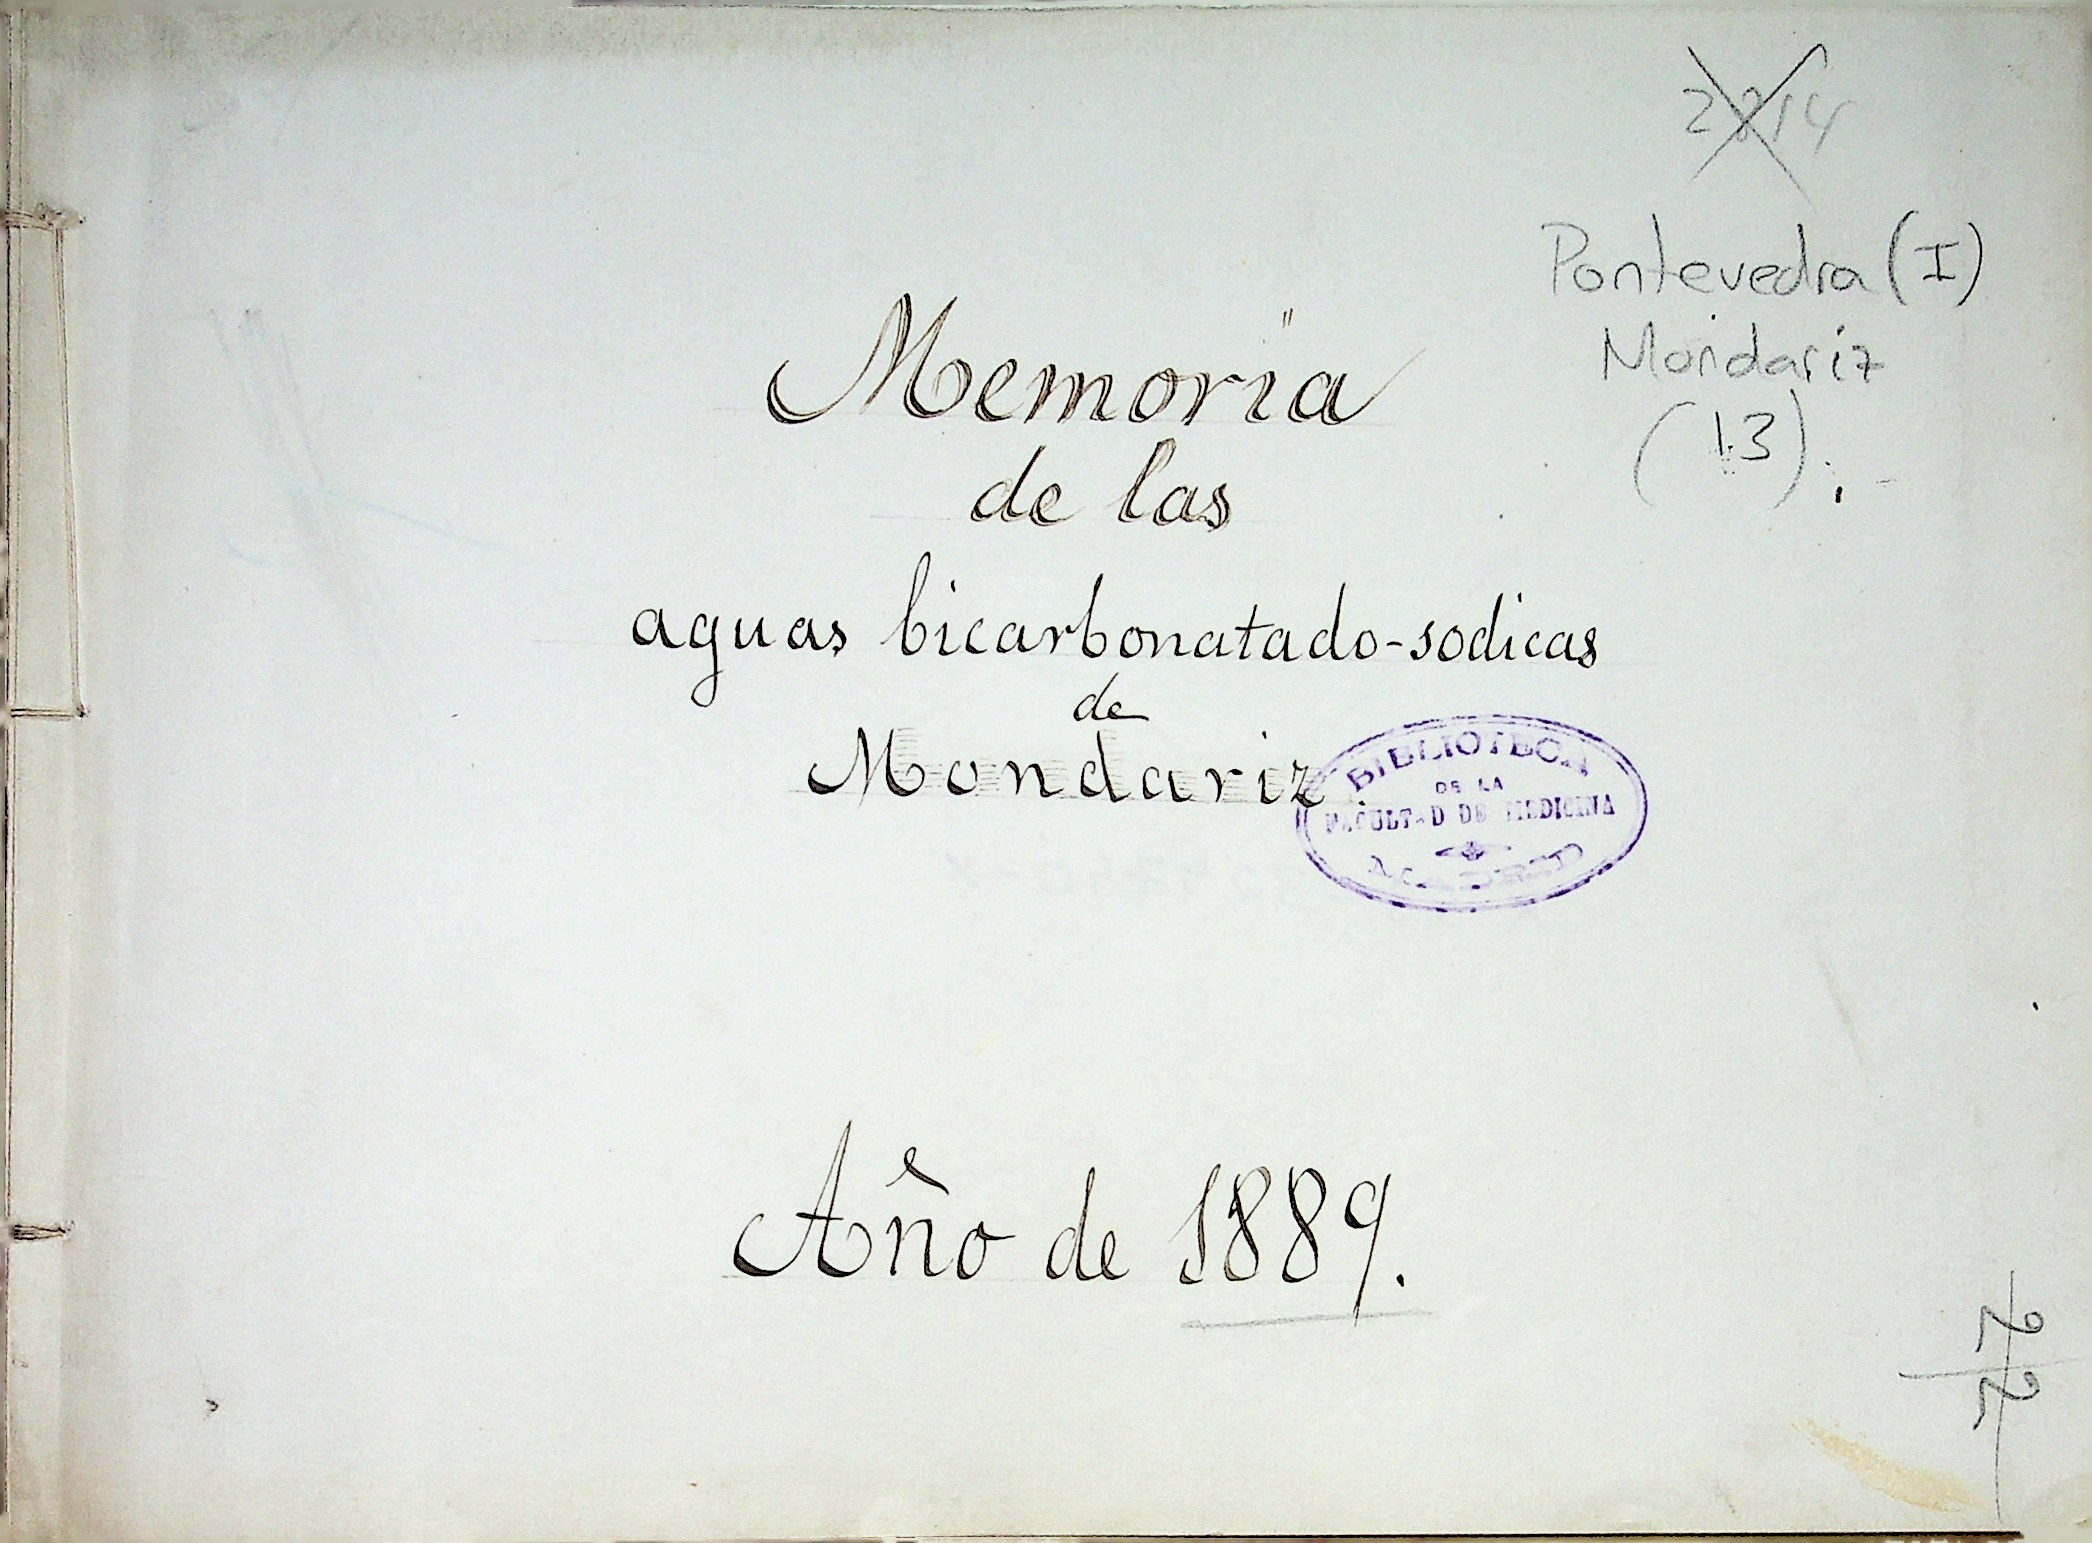 2814
Pontevedra (I)
Mondariz
(13).
Memoria
de las
aguas bicarbonatado-sodicas
de
Mondariz.
BIBLIOTECA
DE LA
FACULTAD DE MEDICINA
MADRID
Año de 1889.